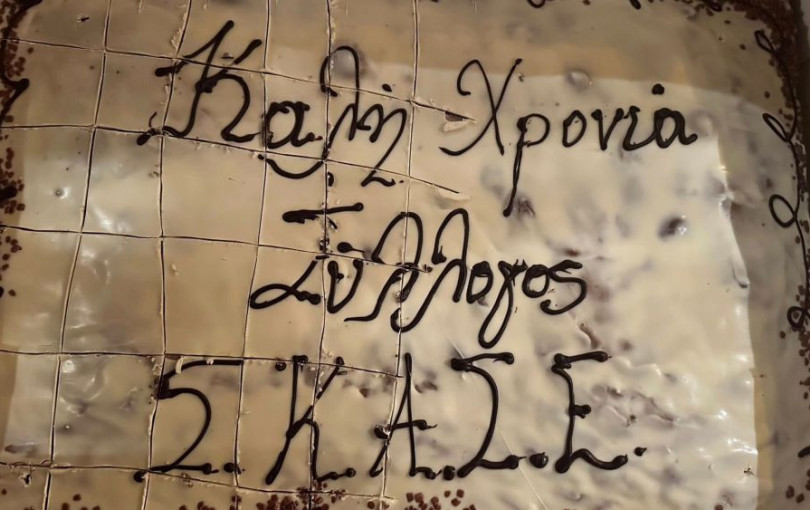 Καλη Χρονιά
Σύλλογος
Σ.Κ.Α.Σ.Ε.